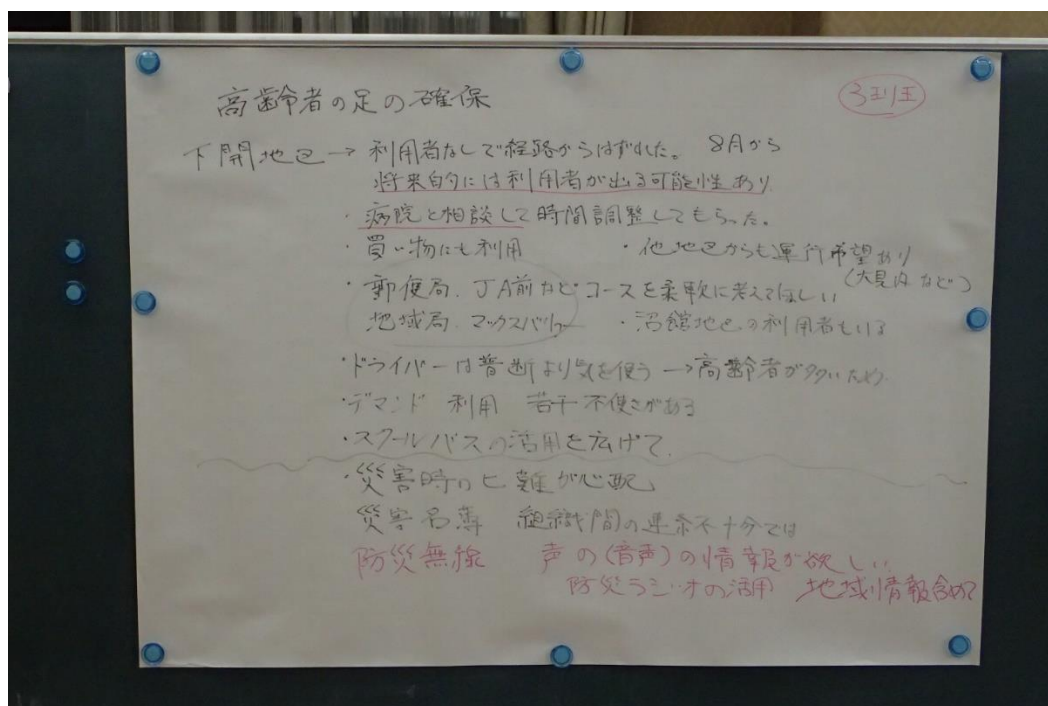 高齢者の足の確保
3班
下開地区→利用者なしで経路からはずれた。 8月から
将来的には利用者が出る可能性あり
・病院と相談して時間調整してもらった。
・買い物にも利用 ・他地区からも運行希望あり
(大見内など)
・郵便局、JA前など コースを柔軟に考えてほしい
地域局、マックスバリュー ・沼館地区の利用者もいる
・ドライバーは普断より気を使う→高齢者が多いため
・デマンド 利用 若干不便さがある
・スクールバスの活用を広げて
・災害時のヒ難が心配
災害名簿 組織間の連系不十分では
防災無線 声の(音声)の情報が欲しい
防災ラジオの活用 地域情報含めて